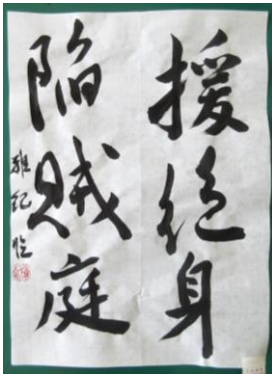 援絶身
陥賊庭
雅紀臨